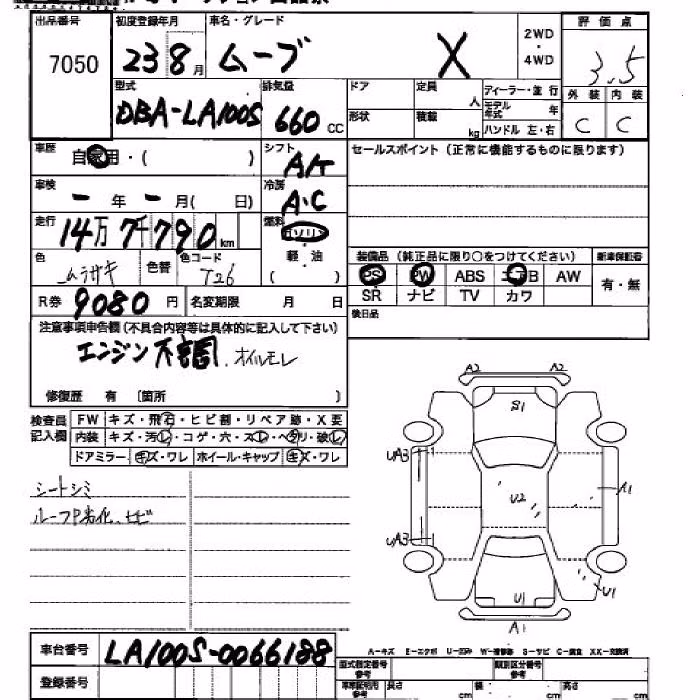 出品番号 初度登録年月 車名・グレード 2WD ・ 4WD 評価点
7050 23 8月 ムーブ X 3.5
型式 排気量 ドア 定員 人 ディーラー・並行 外装 内装
DBA-LA100S 660 CC 形状 積載 kg モデル年式 年 ハンドル 左・右 C C
車歴 自家用・( ) シフト A/T セールスポイント (正常に機能するものに限ります)
車検 ー年ー月( 日) 冷房 A・C
走行 14万7千790km 燃料 ガソリン
色 ムラサキ 色替 色コード T26 軽・油 ( )
装備品 (純正品に限り○をつけてください) 新車保証書
PS PW ABS エアB AW 有・無
SR ナビ TV カワ
R券 9080円 名変期限 月 日
後日品
注意事項申告欄 (不具合内容等は具体的に記入して下さい)
エンジン不調 オイルモレ
修復歴 有 〔箇所 〕
検査員記入欄 FW キズ・飛石・ヒビ割・リペア跡・X要
内装 キズ・汚レ・コゲ・穴・スレ・ヘタリ・破レ
ドアミラー キズ・ワレ ホイール・キャップ キズ・ワレ
シートシミ
ルーフP劣化、ヒビ
A2 A2
S1
UA3
U2 A1
UA3
U1 U1
A1
A-キズ E-エクボ U-凹み W-補修跡 S-サビ C-腐食 XX-交換済
車台番号 LA100S-0066188
登録番号
型式指定番号 参考 類別区分番号 参考
車庫証明用 参考 長さ cm 幅 cm 高さ cm